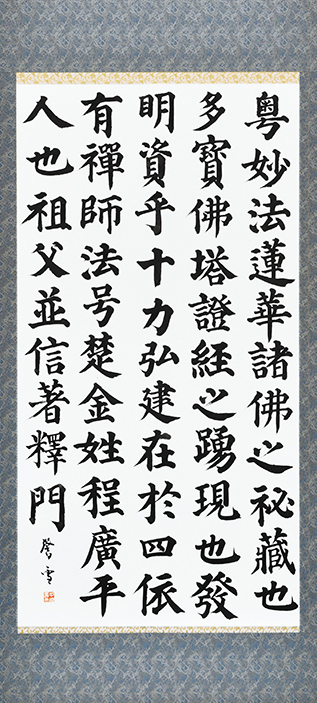 粤妙法蓮華諸佛之祕藏也
多寶佛塔證經之踴現也發
明資乎十力弘建在於四依
有禪師法号楚金姓程廣平
人也祖父並信著釋門
雪